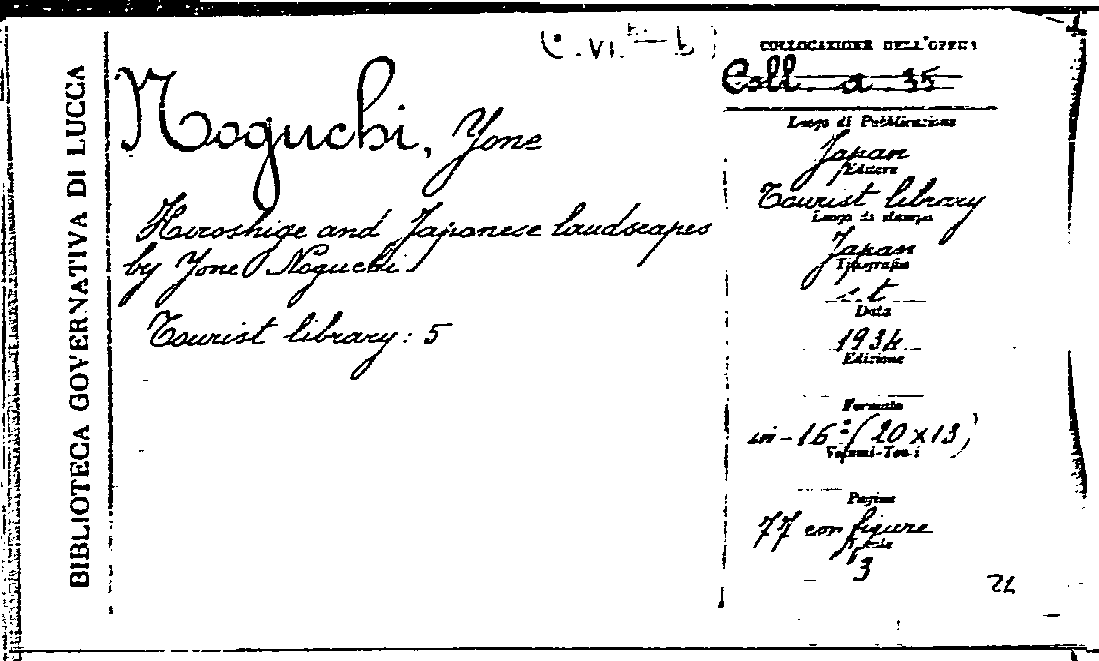 BIBLIOTECA GOVERNATIVA DI LUCCA
Noguchi, Yone
Hiroshige and Japanese landscapes
by Yone Noguchi.
Tourist library: 5
COLLOCAZIONE DELL'OPERA
Coll. a. 35
Luogo di Pubblicazione
Japan
Editore
Tourist library
Luogo di stampa
Japan
Tipografia
s.t.
Data
1934
Edizione
Formato
in-16° (20x13)
Volumi-Tomi
Pagine
77 con figure
3